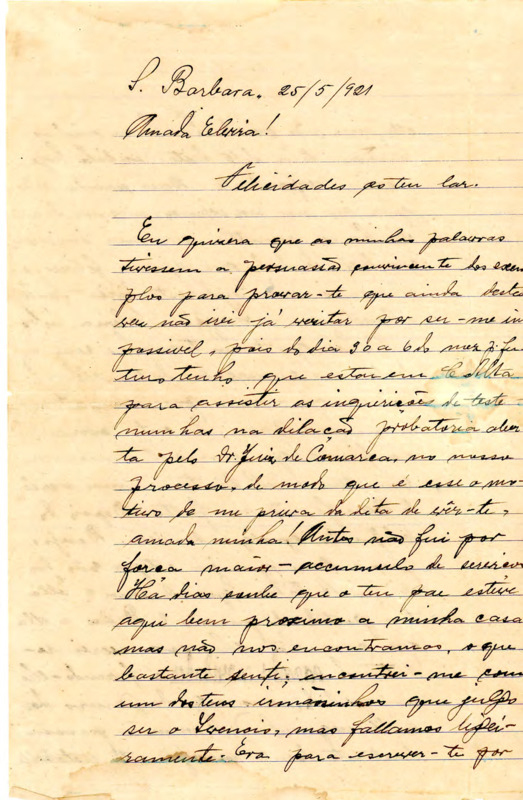 S. Barbara. 25/5/921
Amada Elvira!
Felicidades ao teu lar.
Eu quizera que as minhas palavras
tivessem a persuasão convincente dos exem
plos para provar-te que ainda desta
vez não irei já visitar por ser-me im
possivel, pois do dia 30 a 6 do mez p. fu
turo tenho que estar em C. Alta
para assistir as inquirições de teste-
munhas na dilação probatoria aber
ta pelo Dr. Juiz de Comarca, no nosso
processo, de modo que é esse o mo-
tivo de me privar da dita de vêr-te,
amada minha! Antes não fui por
força maior - accumulo de serviço.
Ha dias soube que o teu pae estêve
aqui bem proximo a minha casa
mas não nos encontramos, o que
bastante senti; encontrei-me com
um dos teus irmãosinhos que julgo
ser o, mas fallamos ligei-
ramente. Era para escrever-te por